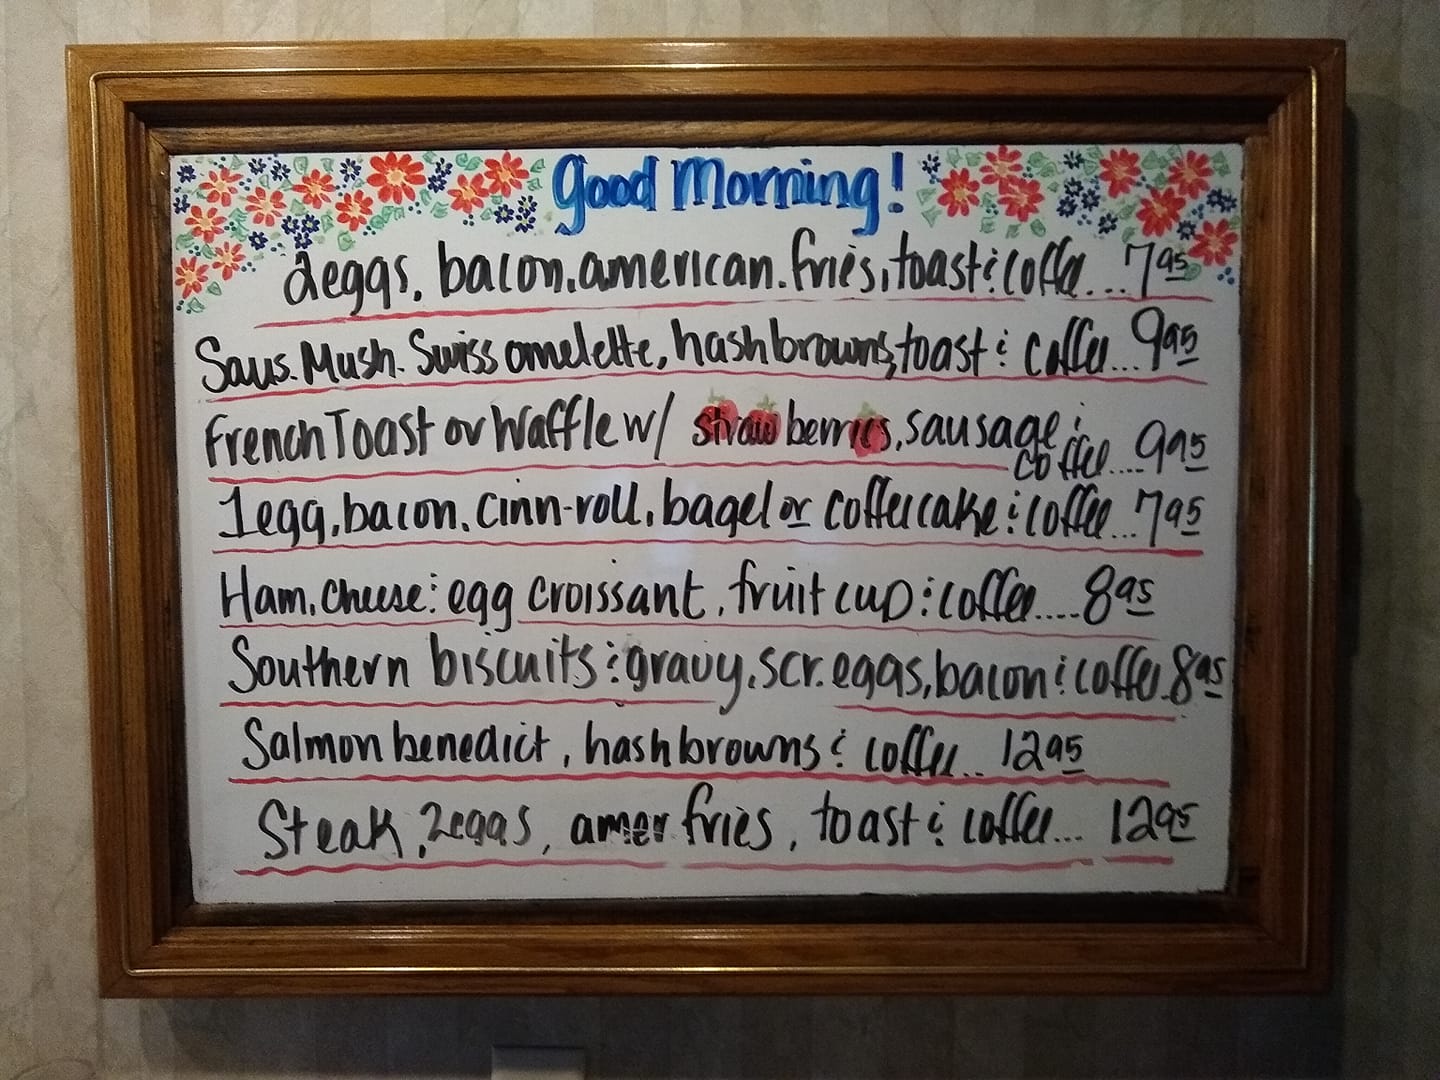 Good Morning!
2eggs, bacon, american. fries, toast & coffee... 7.95
Saus. Mush. Swiss omelette, hashbrowns, toast & coffee... 9.95
French Toast or Waffle w/ strawberries, sausage &
coffee.... 9.95
1egg, bacon, cinn-roll, bagel or coffeecake & coffee... 7.95
Ham, cheese & egg croissant, fruit cup & coffee.... 8.95
Southern biscuits & gravy, scr. eggs, bacon & coffee. 8.95
Salmon benedict, hashbrowns & coffee... 12.95
Steak, 2eggs, amer fries, toast & coffee... 12.95